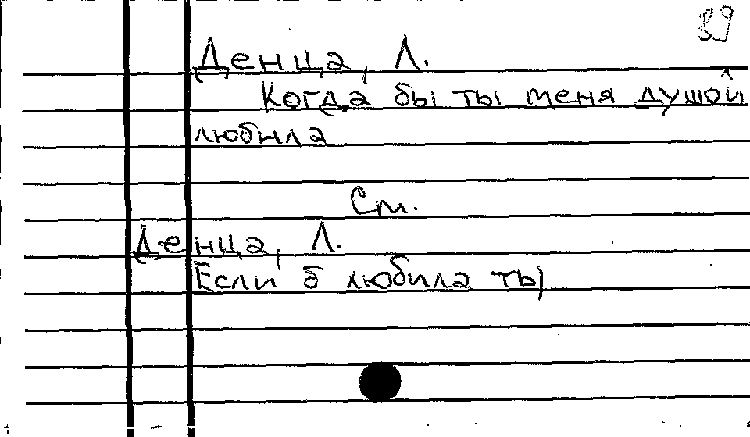 39
Денца, Л.
Когда бы ты меня душой
любила
См.
Денца, Л.
Если б любила ты